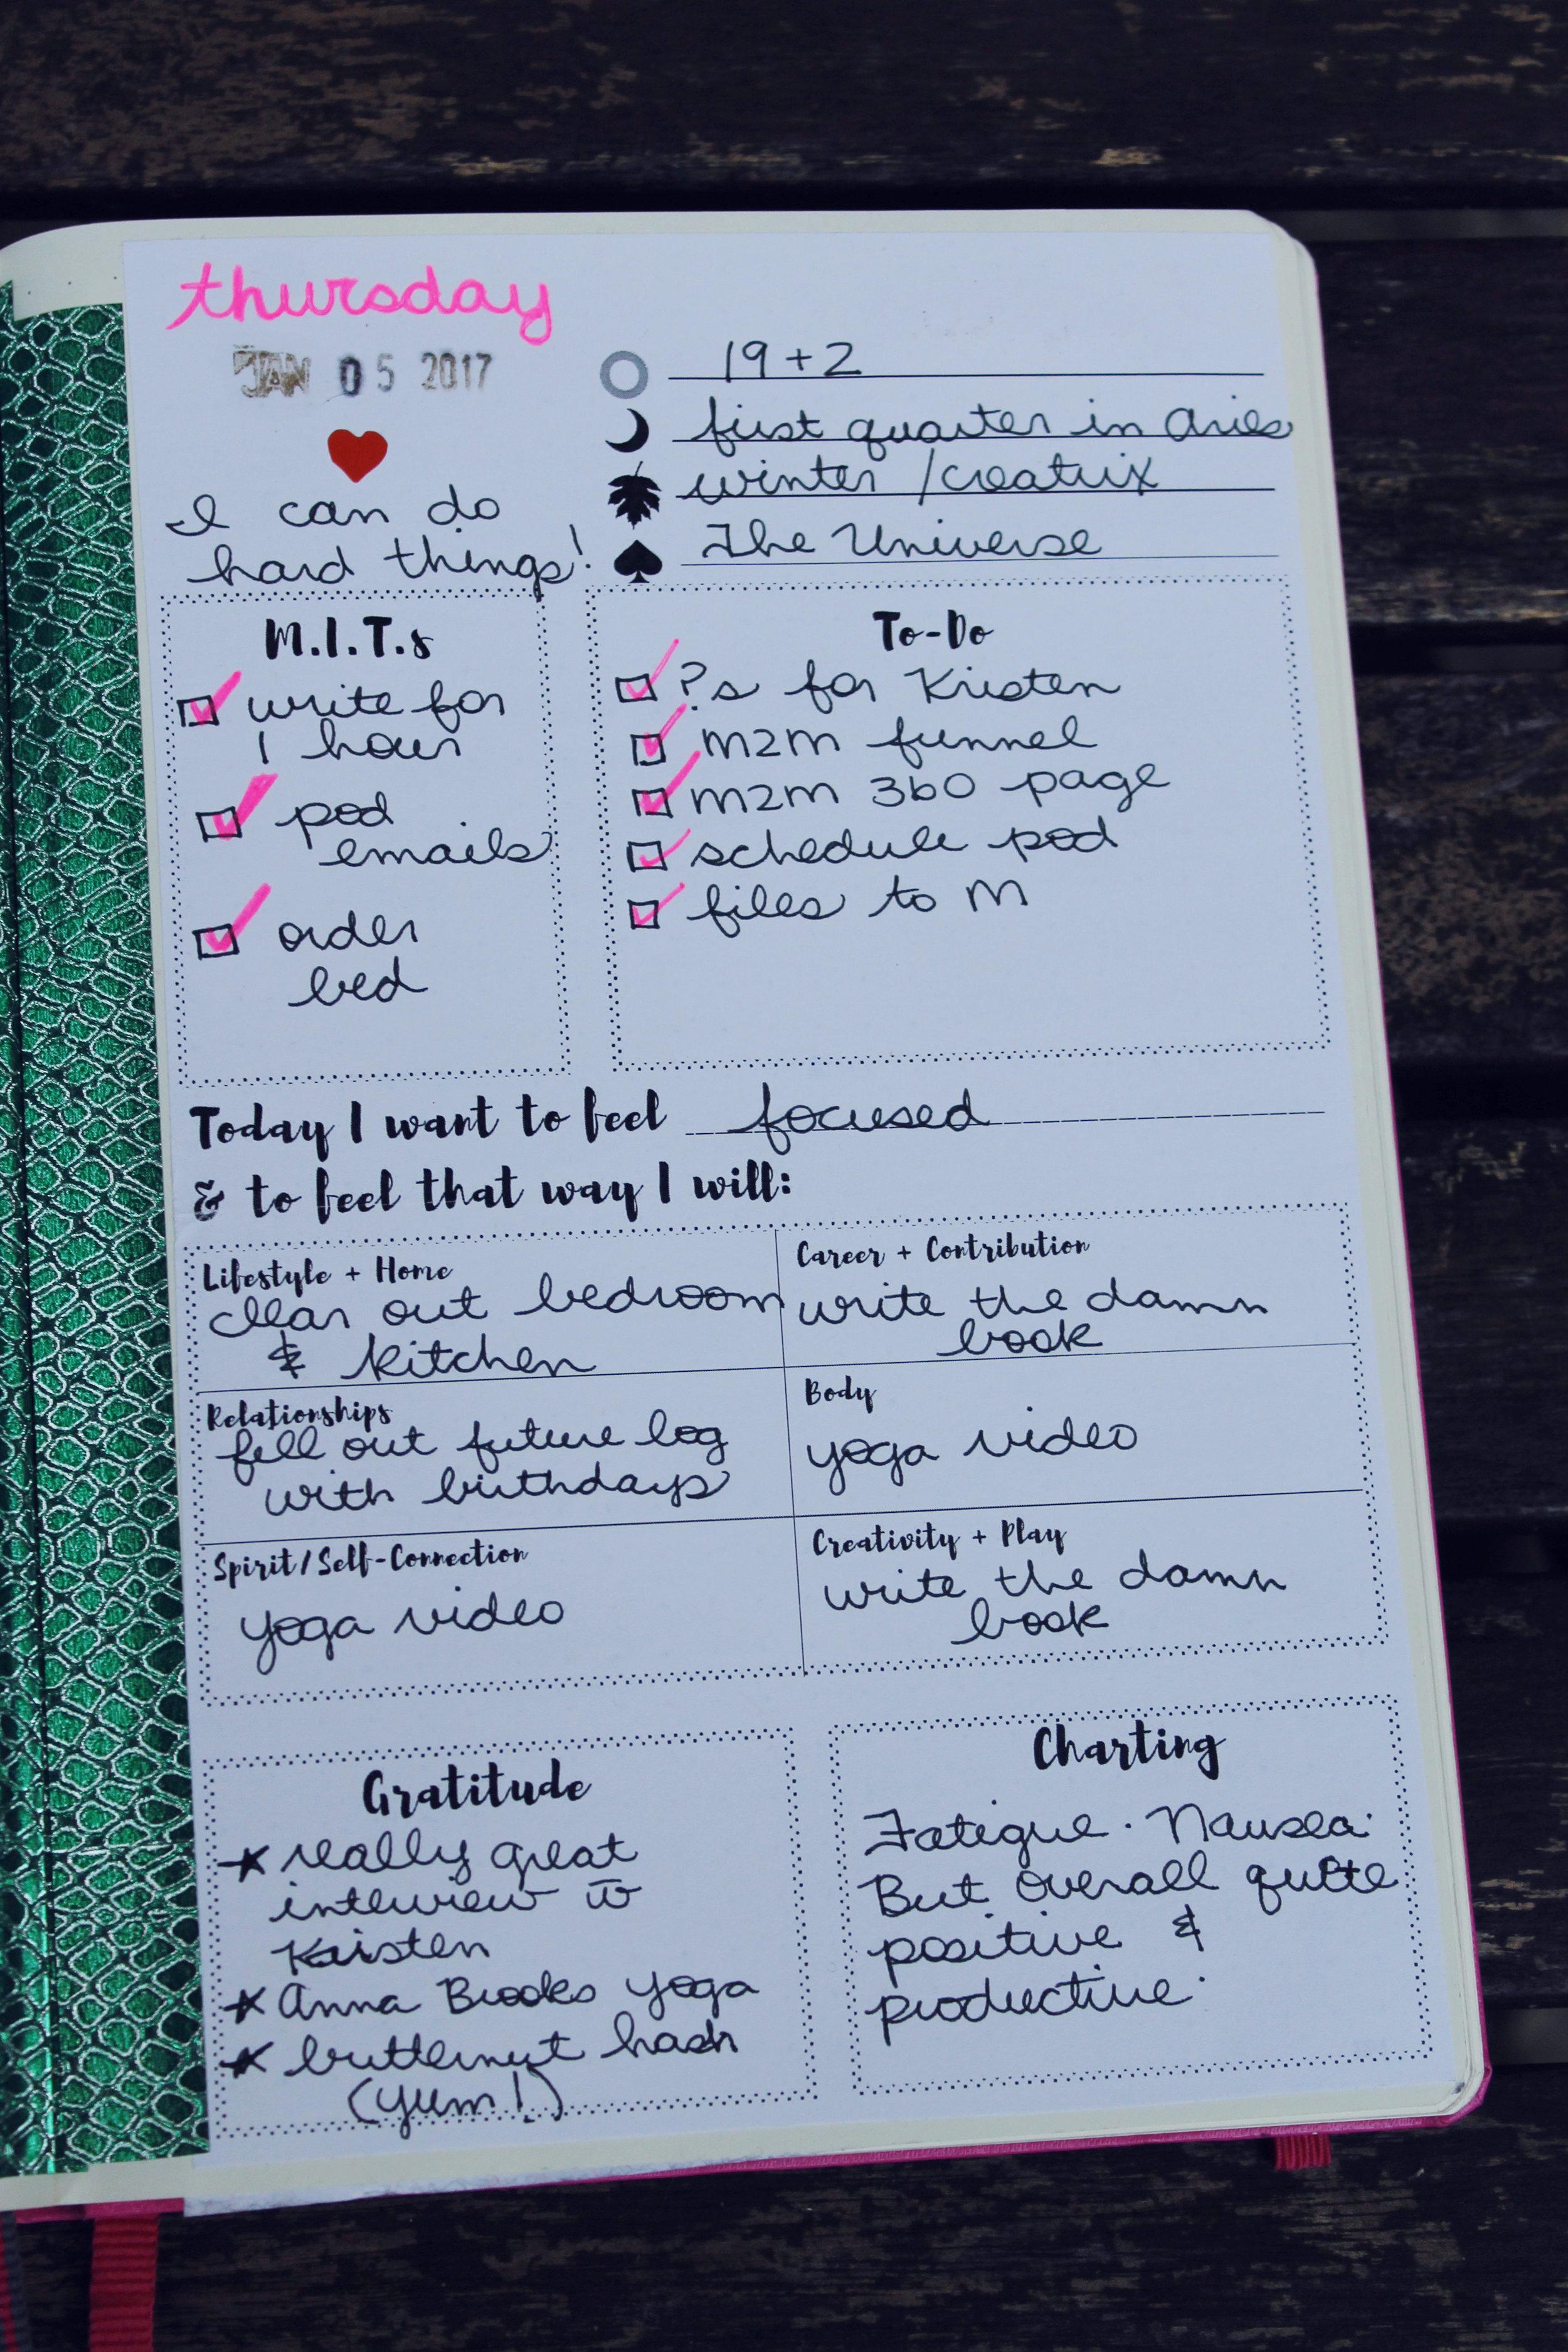 thursday
JAN 05 2017
I can do
hard things!
19+2
first quarter in Aries
winter /creatrix
The Universe
M.I.T.s
write for
1 hour
pod
emails
order
bed
To-Do
?s for Kristen
m2m funnel
m2m 360 page
schedule pod
files to M
Today I want to feel focused
& to feel that way I will:
Lifestyle + Home
clear out bedroom
& kitchen
Career + Contribution
write the damn
book
Relationships
fill out future log
with birthdays
Body
yoga video
Spirit/Self-Connection
yoga video
Creativity + Play
write the damn
book
Gratitude
* really great
interview w̄
Kristen
* Anna Brooks yoga
* butternut hash
(yum!)
Charting
Fatigue. Nausea.
But overall quite
positive &
productive.